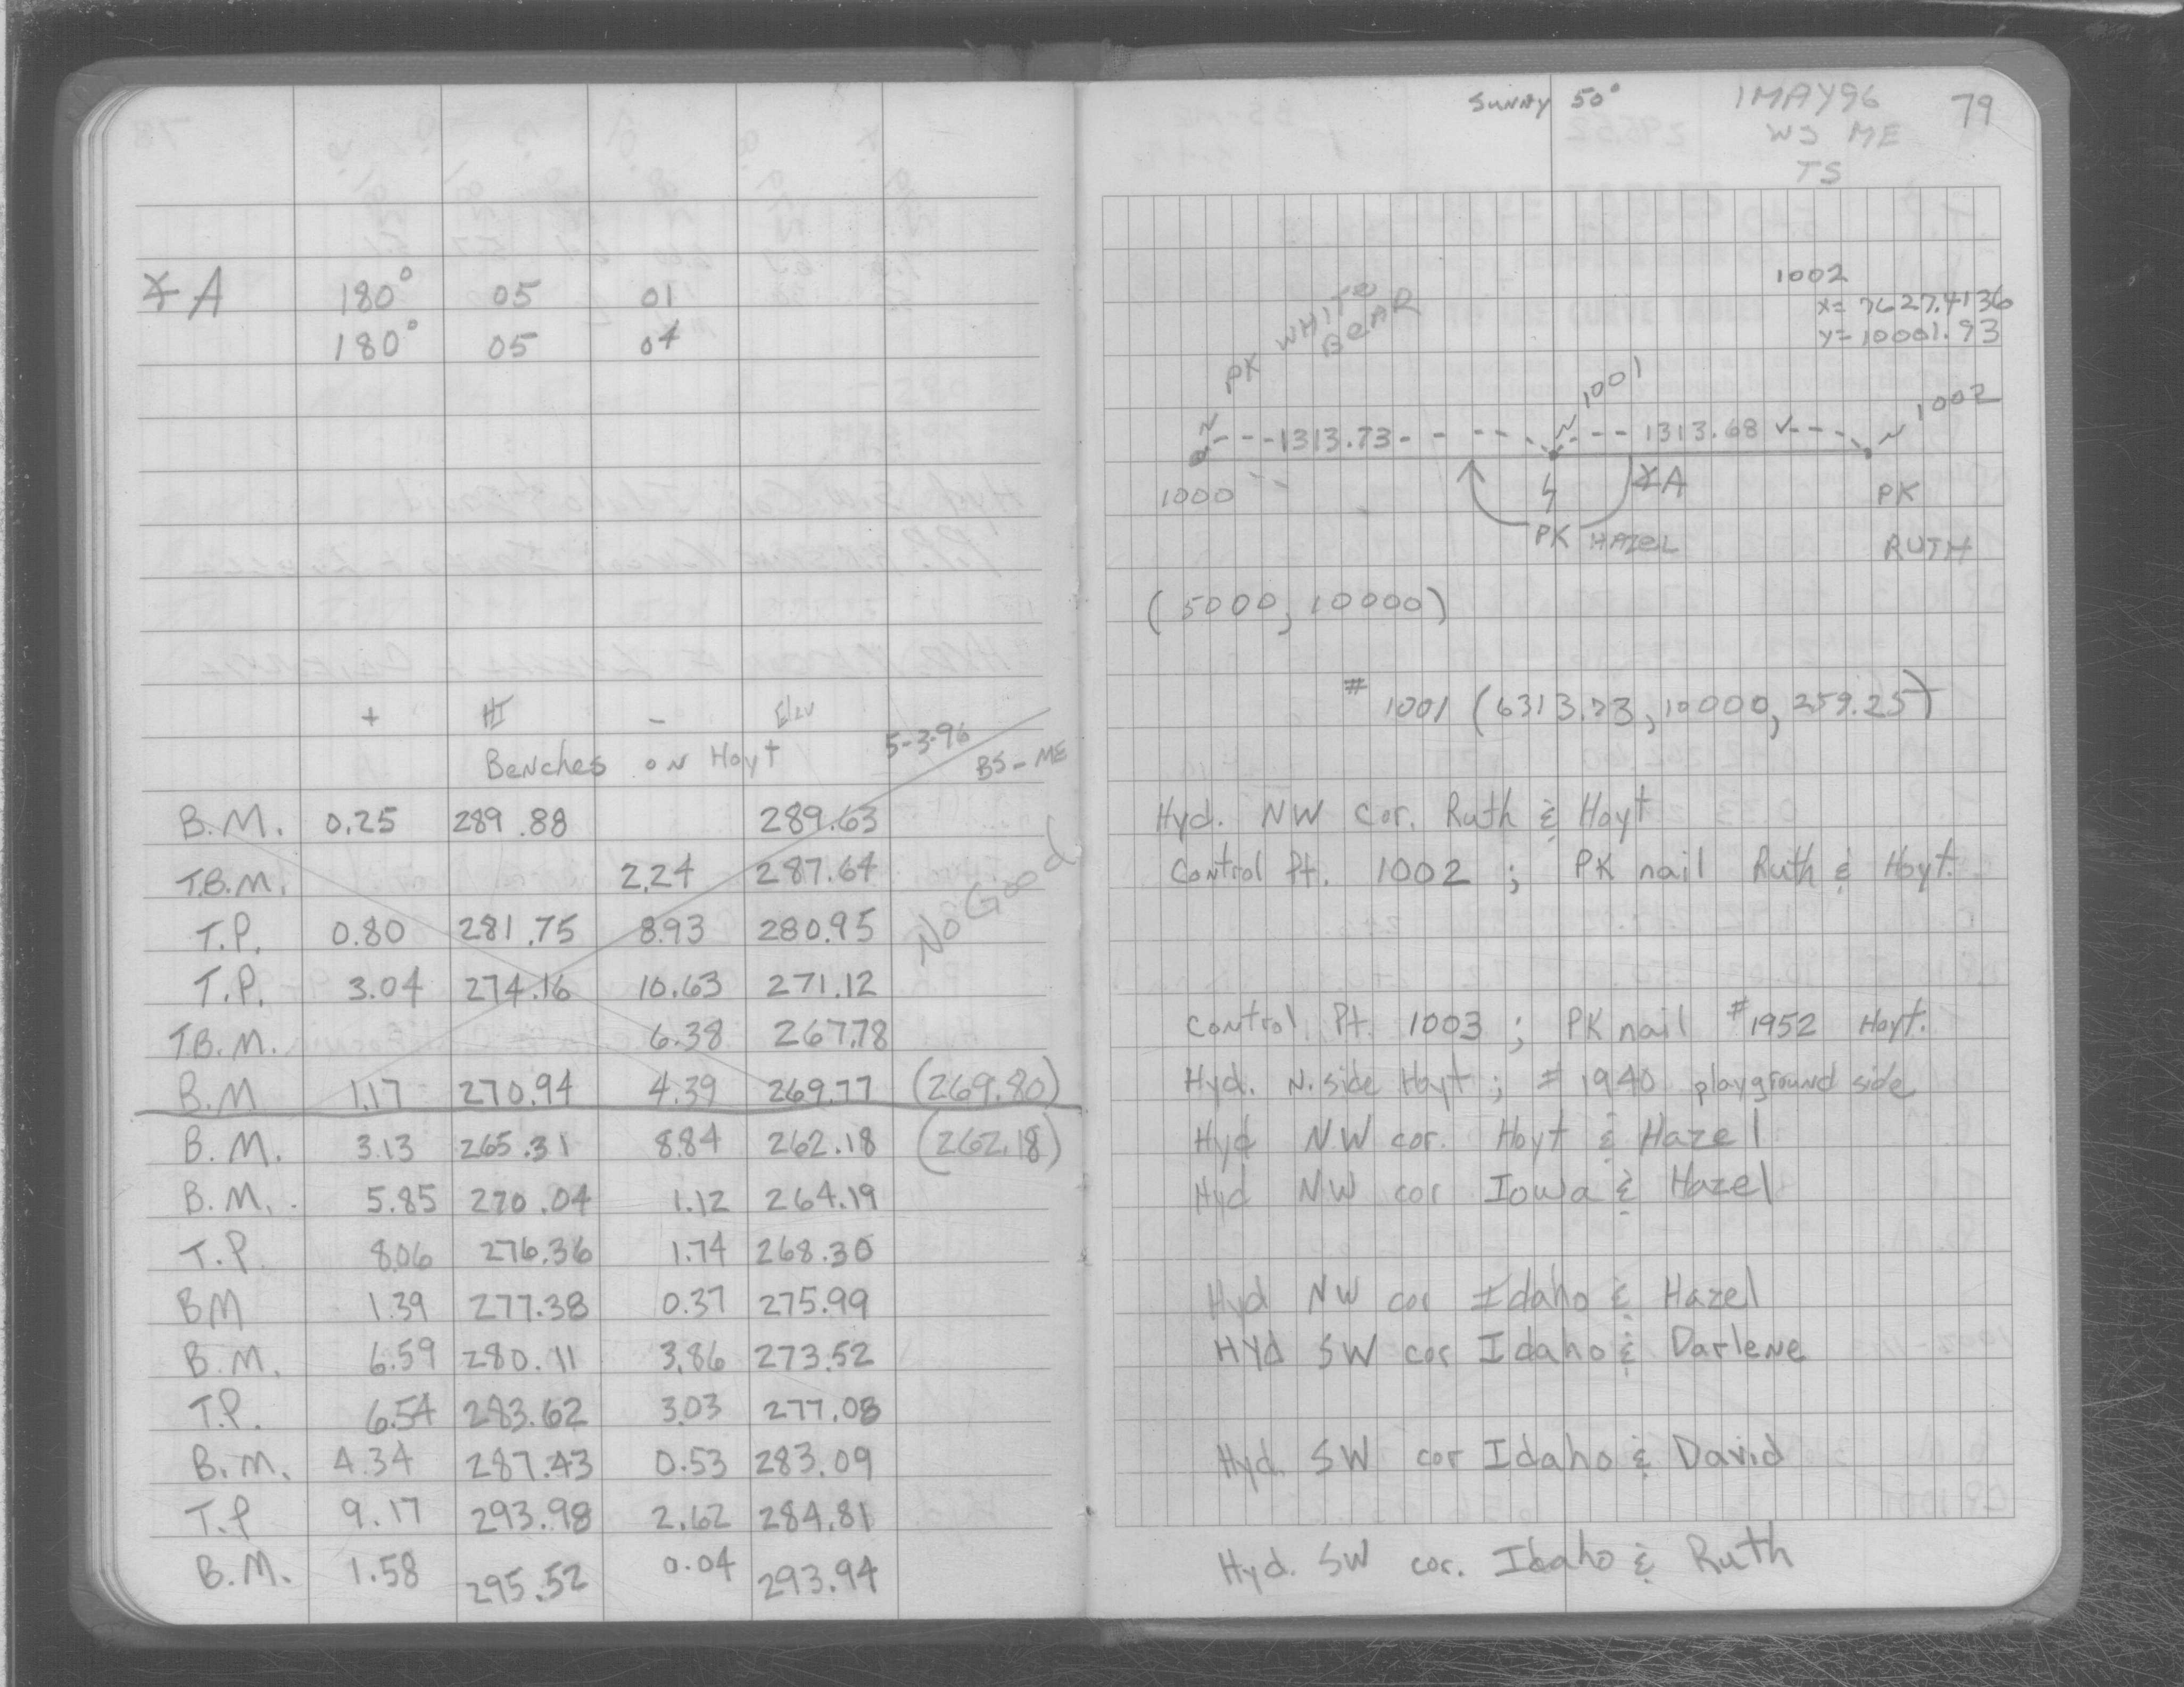 ∡A 180° 05 01
180° 05 04
+ HI - Elev
Benches on Hoyt 5-3-96 BS-ME
B.M. 0.25 289.88 289.63
T.B.M. 2.24 287.64
T.P. 0.80 281.75 8.93 280.95
No Good
T.P. 3.04 274.16 10.63 271.12
T.B.M. 6.38 267.78
B.M 1.17 270.94 4.39 269.77 (269.80)
B.M. 3.13 265.31 8.84 262.18 (262.18)
B.M. 5.85 270.04 1.12 264.19
T.P. 8.06 276.36 1.74 268.30
BM 1.39 277.38 0.37 275.99
B.M. 6.59 280.11 3.86 273.52
T.P. 6.54 283.62 3.03 277.08
B.M. 4.34 287.43 0.53 283.09
T.P 9.17 293.98 2.62 284.81
B.M. 1.58 295.52 0.04 293.94
SUNNY 50° 1MAY96 79
WJ ME
TS
1002
x= 7627.4136
y= 10001.93
PK WHITE BEAR
1001
1002
1313.73
1313.68 ✓
1000
∡A
PK HAZEL
PK
RUTH
(5000, 10000)
# 1001 (6313.73, 10000, 259.25)
Hyd. NW cor. Ruth & Hoyt
Control Pt. 1002 ; PK nail Ruth & Hoyt.
Control Pt. 1003 ; PK nail #1952 Hoyt.
Hyd. N. side Hoyt ; # 1940 playground side
Hyd NW cor. Hoyt & Hazel
Hyd NW cor Iowa & Hazel
Hyd NW cor Idaho & Hazel
HYd SW cor Idaho & Darlene
Hyd. SW cor Idaho & David
Hyd. SW cor. Idaho & Ruth